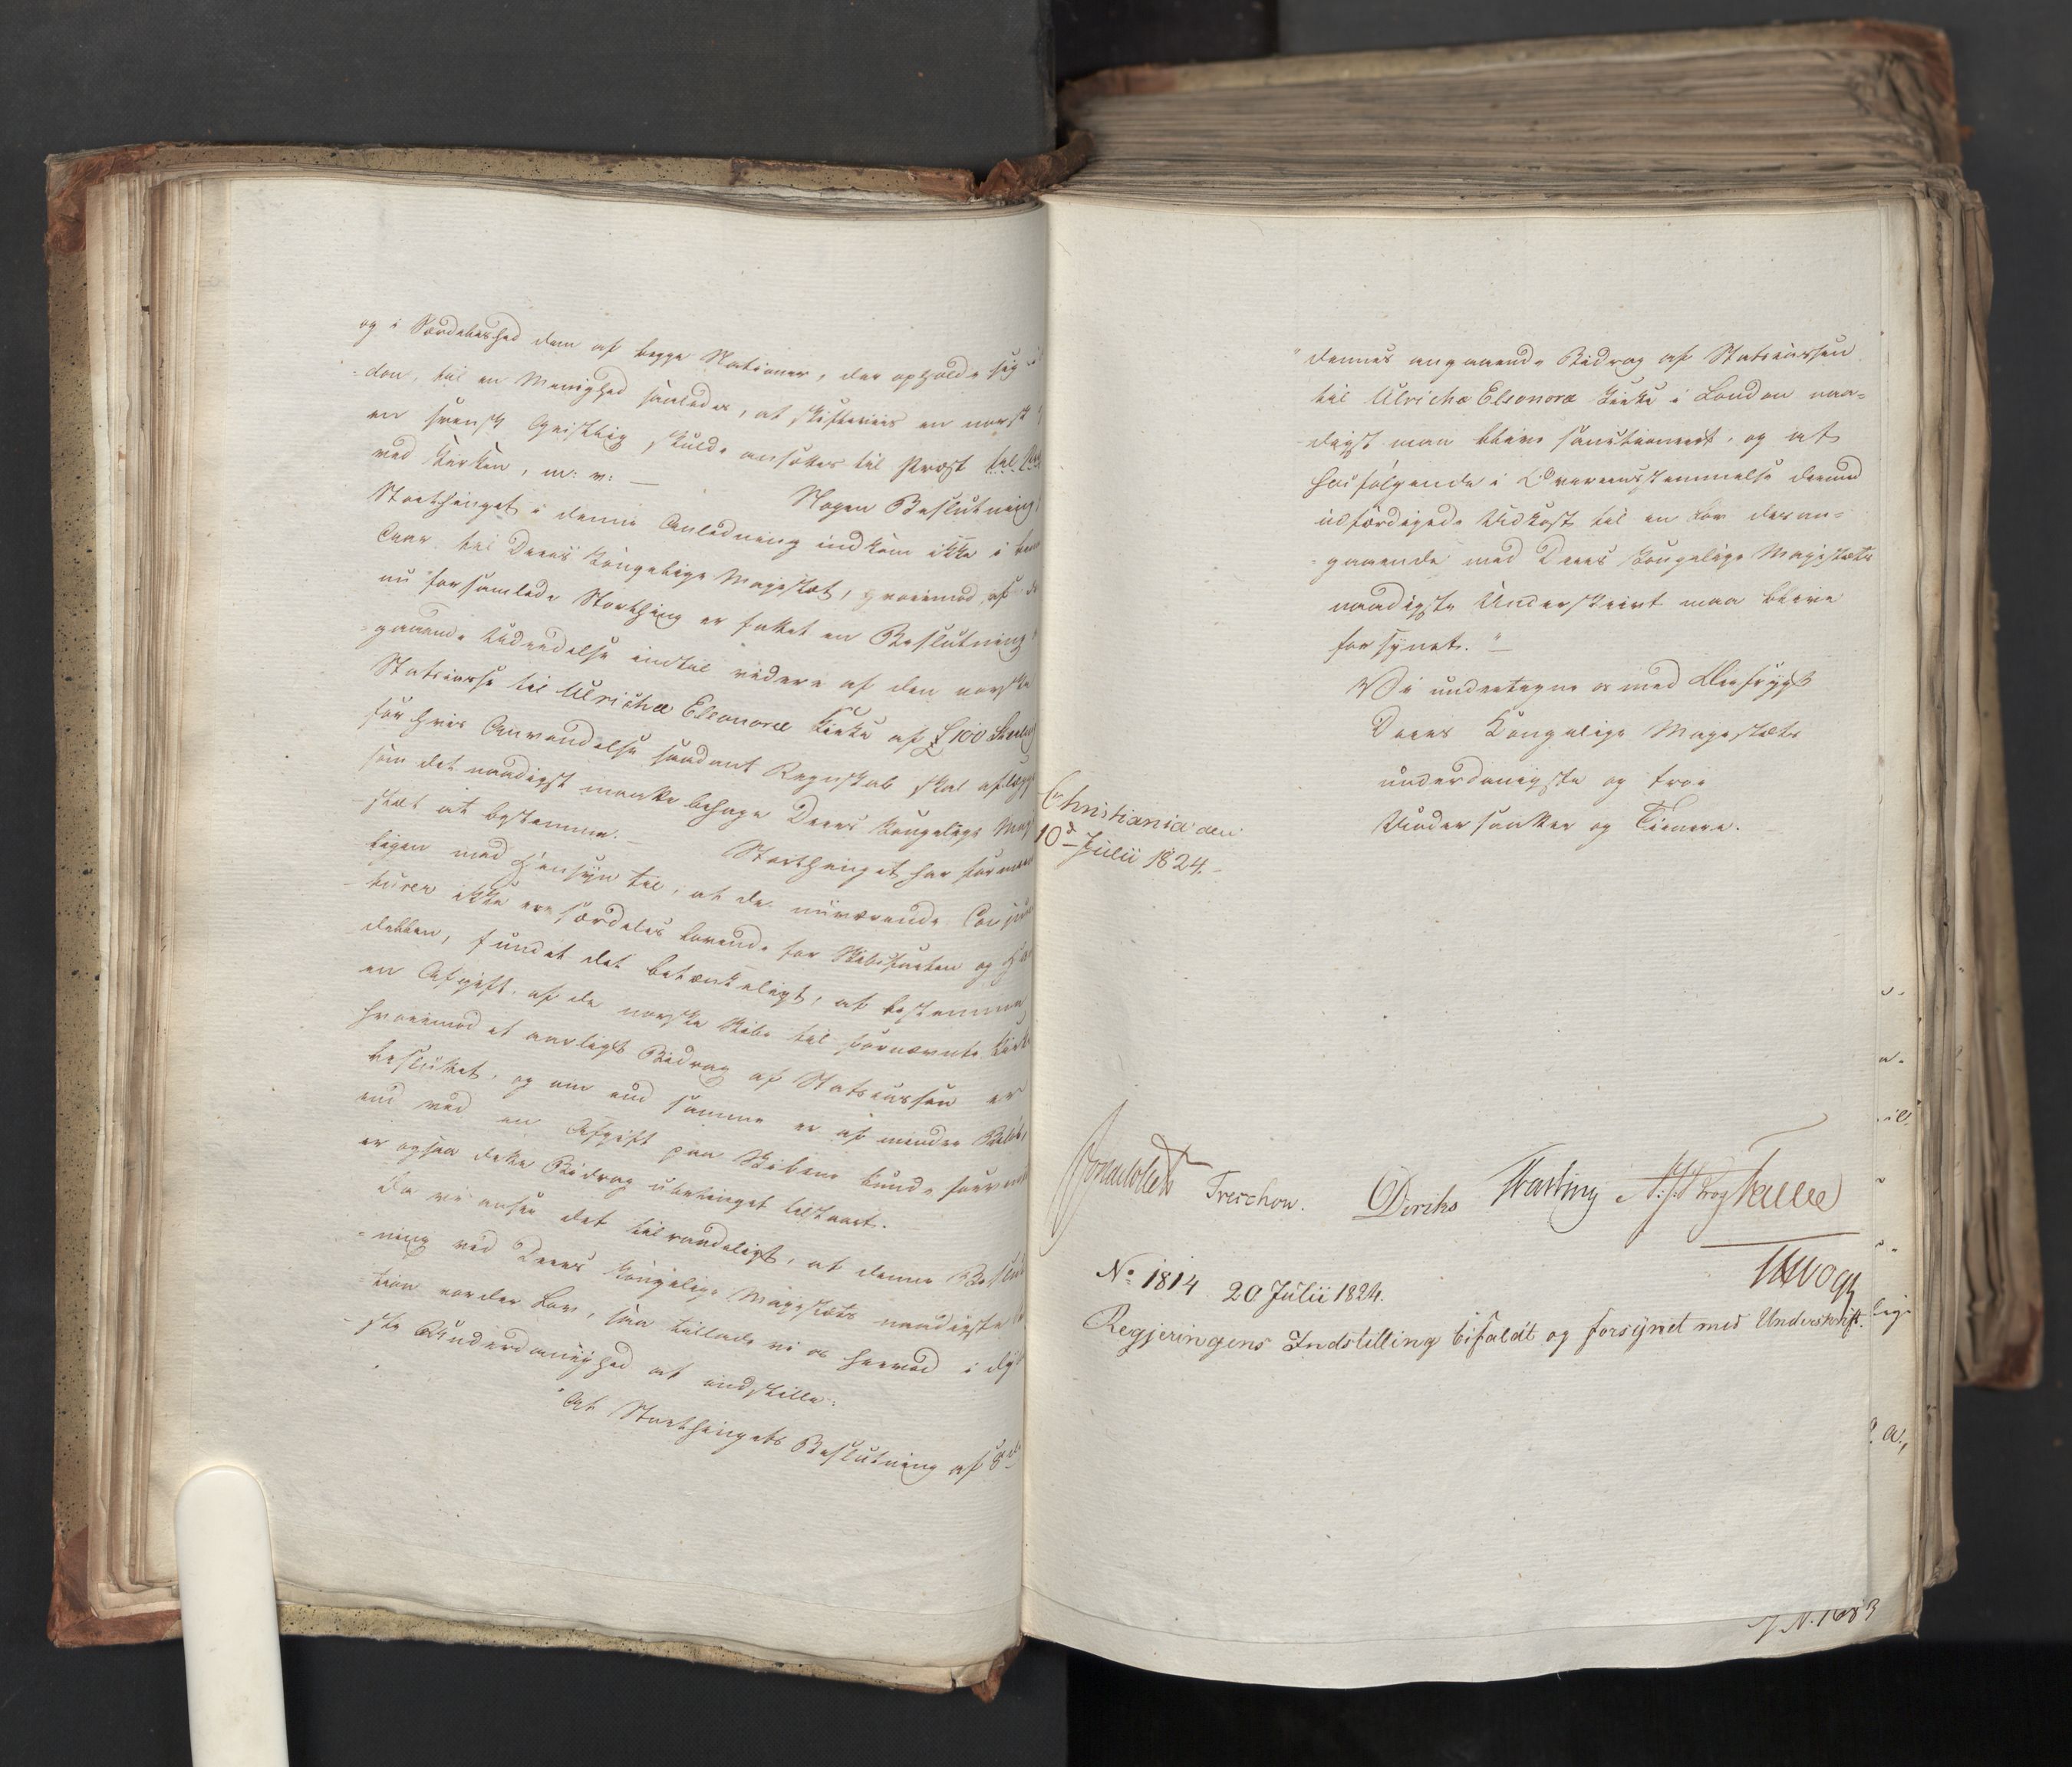 og i Særdeleshed dem af begge Nationer, der opholde sig i
don, til en Menighed samledes, at skifteviis en norsk
en svensk Geistlig skulde ansættes til Præst
ved Kirken, m: v: — Nogen Beslutning
Storthinget i denne Anledning indkom ikke i
Aar til Deres Kongelige Majestæt, hvorimod af
nu forsamlede Storthing er fattet en Beslutning
gaaende Udredelse indtil videre af den norske
Statscasse til Ulricha Eleonoræ Kirke af £ 100 Sterling
for hvis Anvendelse saadant Regnskab skal aflægges
som det naadigst maatte behage Deres Kongelige Maj
stæt at bestemme. — Storthinget har
ligen med Hensyn til, at de nuværende Conjunc
turer ikke ere særdeles lovende for Skibsfarten og Han
delen, fundet det betænkeligt, at bestemme
en Afgift af de norske Skibe til fornævnte Kirke
hvorimod et aarligt Bidrag af Statscassen er
besluttet, og om end samme er af mindre Beløb,
end ved en Afgift paa Skibene kunde
er ogsaa dette Bidrag ubetinget tilstaaet.
Da vi ansee det tilraadeligt, at denne Beslut
=ning ved Deres Kongelige Majestæts naadigste
tion vorder Lov, saa tillade vi os herved i dyb
ste Underdanighed at indstille:
"At Storthingets Beslutning af 8de
"dennes angaaende Bidrag af Statscassen
til Ulricha Eleonoræ Kirke i London naa=
digst maa blive sanctioneret, og at
hosfølgende i Overeensstemmelse dermed
udfærdigede Udkast til en Lov deran=
=gaaende med Deres Kongelige Majestæts
naadigste Underskrivt maa blive
forsynet." —
Vi undertegne os med Ærefrygt
Deres Kongelige Majestæts
underdanigste og troe
Undersaatter og Tienere.
Christiania den
10d Julii 1824.
Treschow. Diriks N: J: Krog
No 1814 20 Julii 1824.
Regjeringens Indstilling bifaldt og forsynet med Underskrift.
J. N. 1683